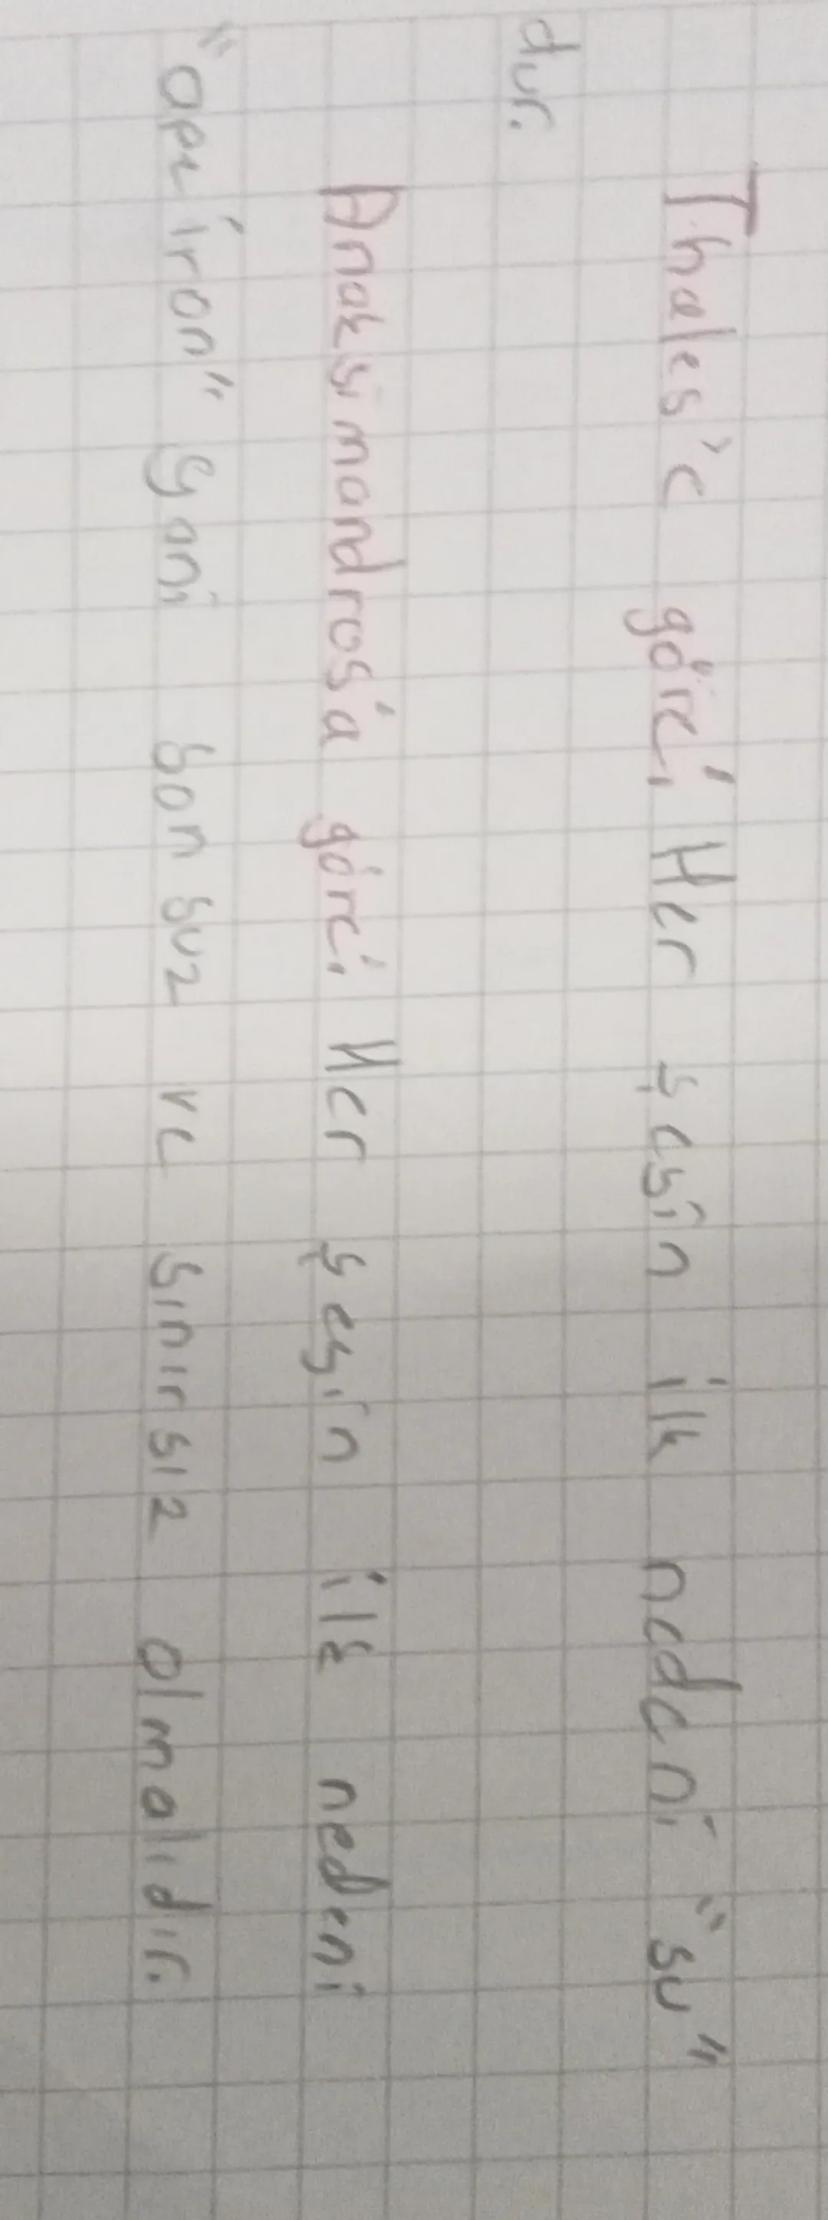 Thales'e göre; Her şeyin ilk nedeni "su"
dur.
Anaksimandros'a göre; Her şeyin ilk nedeni
"apeiron" yani sonsuz ve sınırsız olmalıdır.